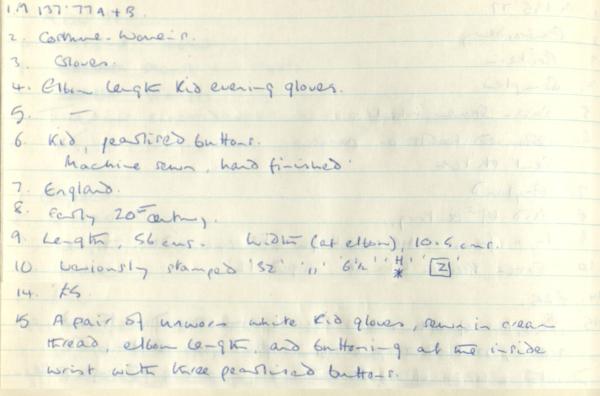 1. M 137.77 A + B.
2. Costume - Women's.
3. Gloves.
4. Elbow length kid evening gloves.
5. —
6. Kid, pearlised buttons.
Machine sewn, hand finished.
7. England.
8. Early 20th century.
9. Length, 56 cms. Width (at elbow), 10.5 cms.
10 Variously stamped '32' '11' '6½' 'H *' '2'
14. £5
15 A pair of unworn white kid gloves, sewn in cream
thread, elbow length, and buttoning at the inside
wrist with three pearlised buttons.